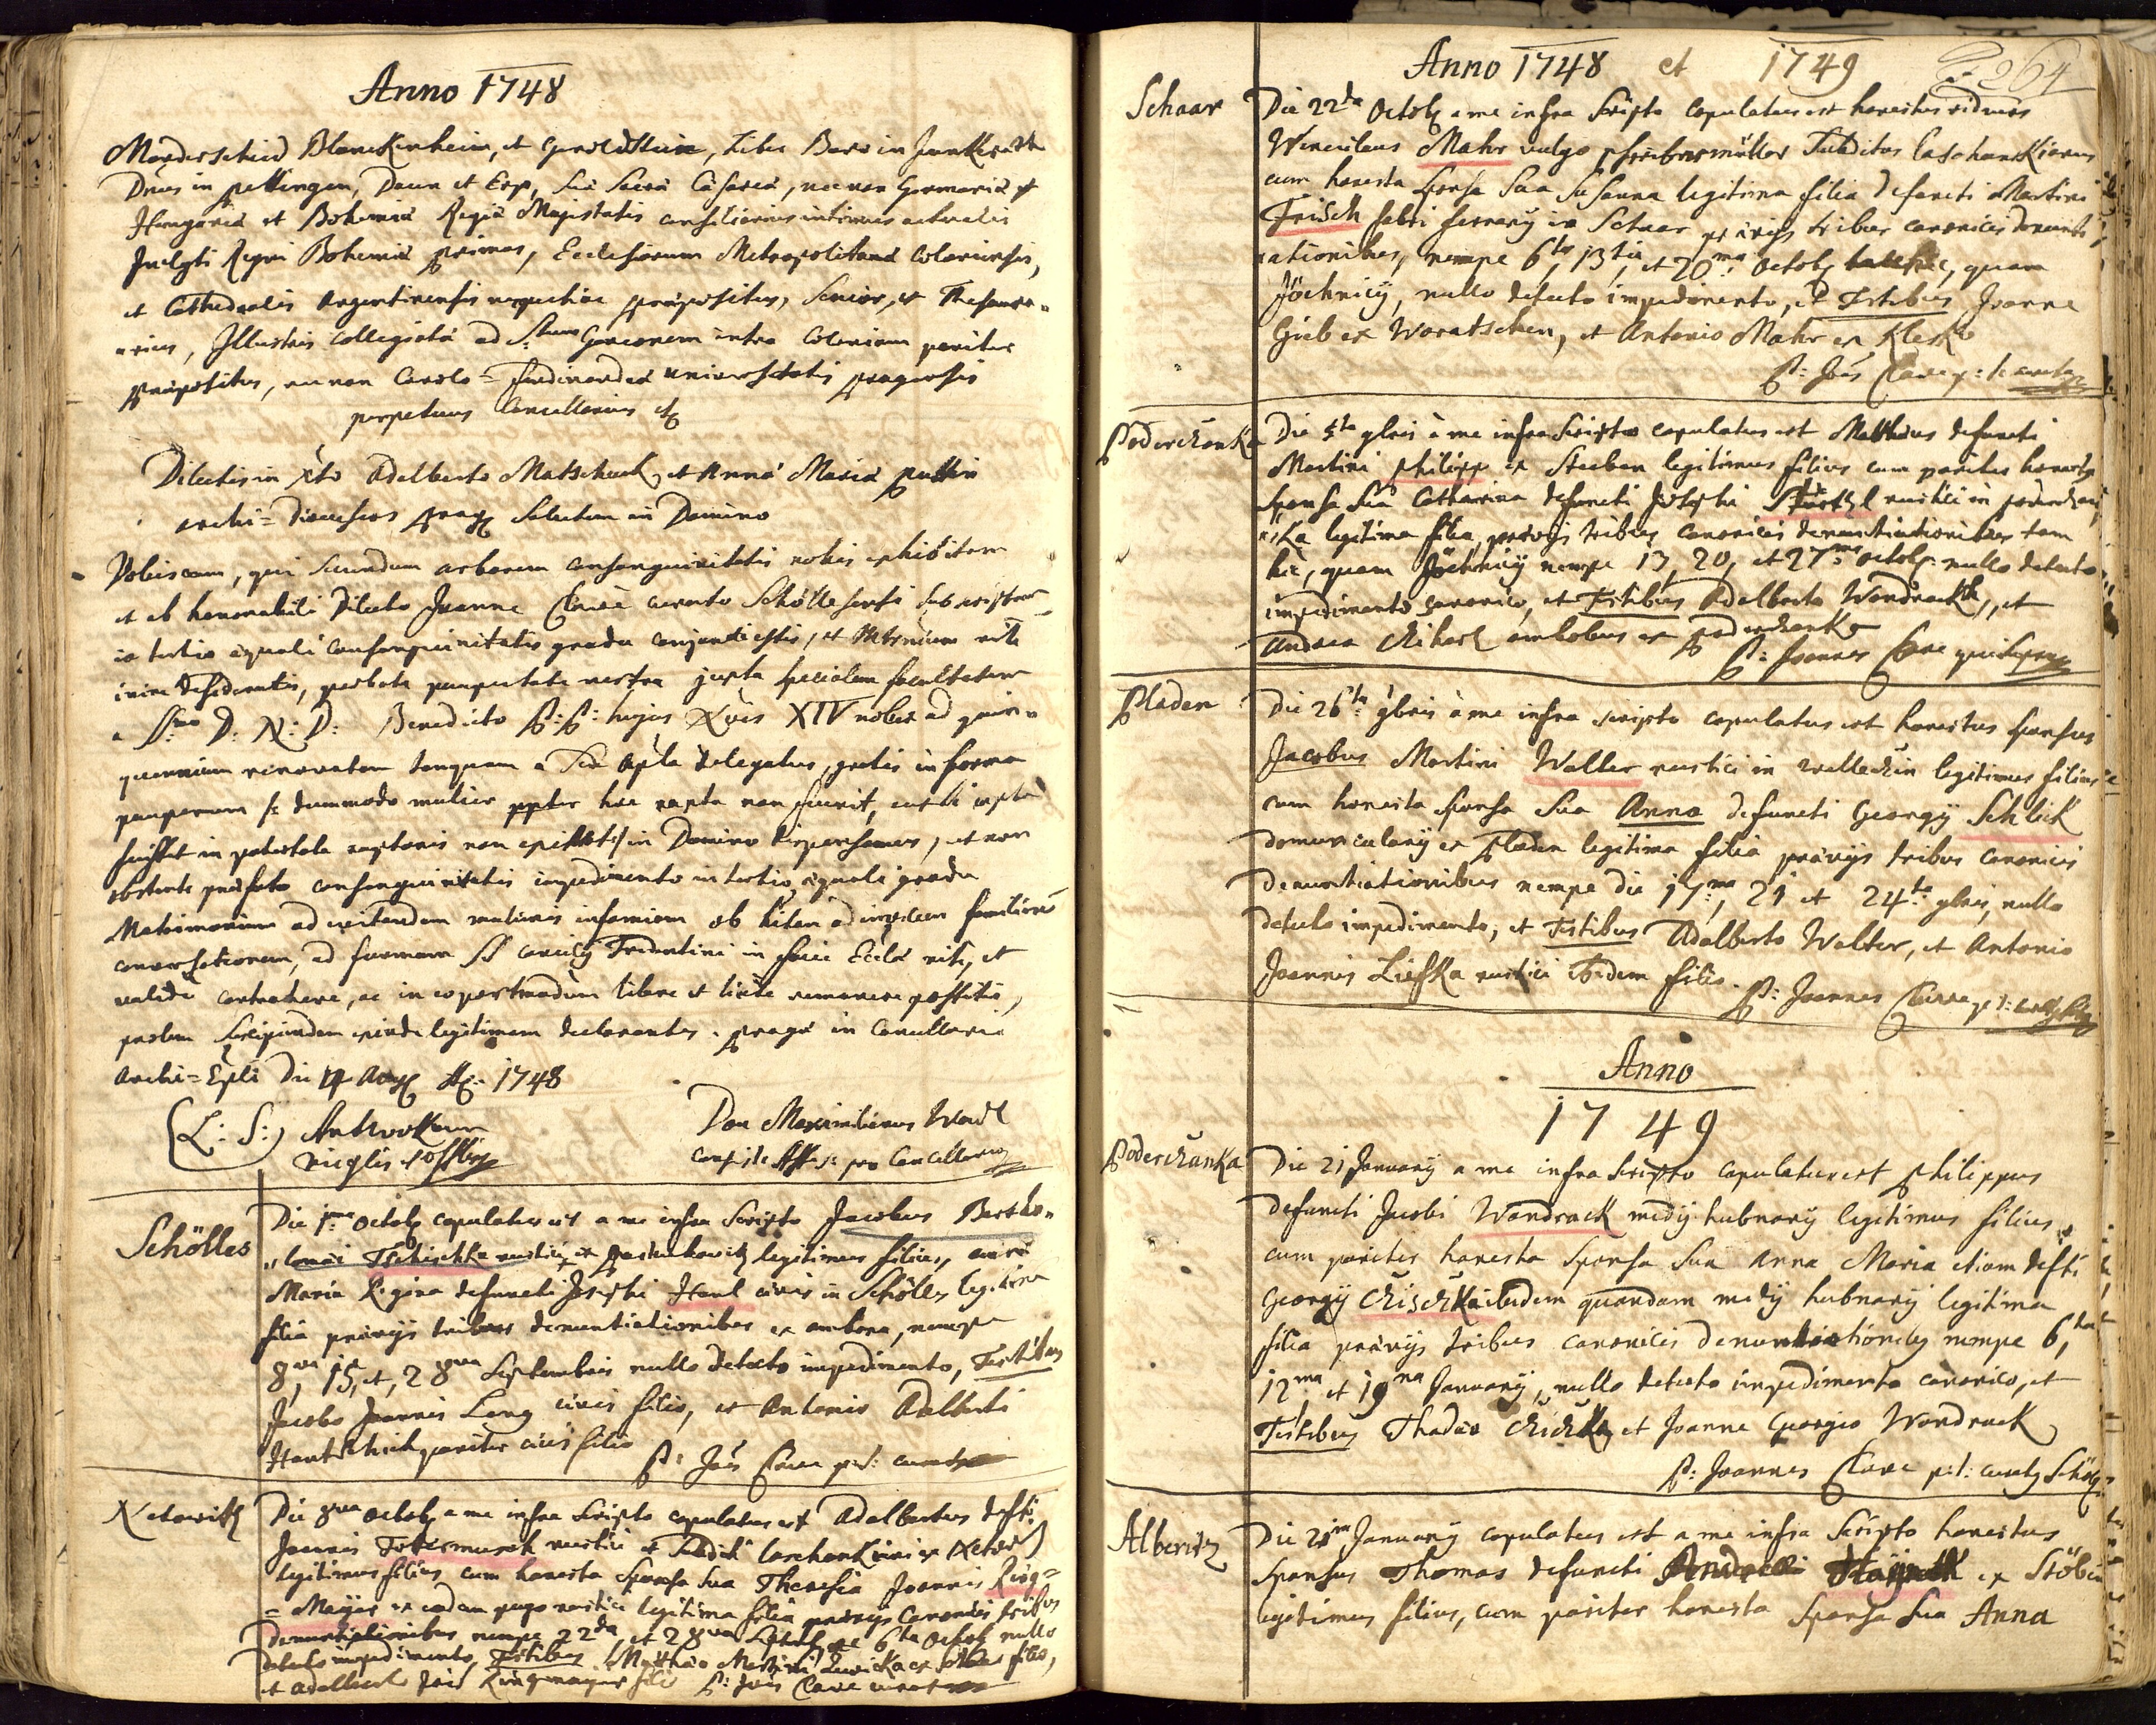 Anno 1748
Manderscheid Blanckenheim, et Geroldstein, Liber Baro in Junkerath
Dnus in Pettingen, Daun et Erp, Suæ Sacræ Cæsareæ, nec non Germaniæ et
Hungariæ et Bohemiæ Regiæ Majestatis consiliarius intimus actualis
Inclyti Regni Bohemiæ primas, Ecclesiarum Metropolitanæ Coloniensis,
et Cathedralis Argentinensis respective præpositus, Senior, et Thesaura-
rius, Illustris Collegiatæ ad S: Gereonem intra Coloniam pariter
præpositus, nec non Carolo=Ferdinandeæ universitatis pragensis
perpetuus Cancellarius
Dilectis in Xto Adalberto Matscheck, et Annæ Mariæ
archi=Diœcesos prag Salutem in Domino
Vobiscum, qui secundum arborem consanguinitatis nobis exhibitam
et ab honorabili Dilecto Joanne Clave curato Schöllesensi subscriptam
in tertio æquali consanguinitatis gradu conjuncti estis, et Mtrnium rite
inire desideratis, probata paupertate vestra juxta specialem facultatem
a Ssmo D: N: D: Benedicto P:P: hujus XIV nobis ad quin-
quennium renovatam tanquam a Se Apla delegatus, gratis in forma
pauperum /: dummodo mulier ppter hoc rapta non fuerit, aut si rapta
fuisset in potestate raptoris non existat :/ in Domino dispensamus, ut non
obstante præfato consanguinitatis impedimento in tertio æquali gradu
Matrimonium ad evitandam infamiam ob ad invicem familiarem
conversationem, ad formam SS Concilij Tridentini in facie Eccla rite, et
valide contrahere, ac in eo postmodum libere et licite remanere possitis,
prolem suscipiendam exinde legitimam declarantes. Pragæ in Cancellaria
Archi=Epli Die 1748
(L: S:) Antwokunn
vic glis
Don Maximilianus
pro Cancellario
Schölles
Die 1ma octob copulatus est a me infra Scripto Jacobus Bartho-
lomæi Tschischka rustici ex legitimus filius, cum
Maria Regina defuncti Josephi Hanl civis in Schölles legitima
filia prævijs tribus denuntiationibus ex ambona, nempe
8va, 15, et, 28va Septembris nullo detecto impedimento, Testibus
Jacobo Joannis Lang civis filio, et Antonio Adalberti
pariter civis filio P: Joãs Clave p:t: curatus
Netowitz
Die 8va octob a me infra Scripto copulatus est Adalbertus defti
Joannis rustici et subditi Laschankiani ex
legitimus filius cum honesta Sponsa Sua Theresia Joannis Ring=
=Mayer ex eodem pago rustici legitima filia prævijs Canonicis tribus
denuntiationibus nempe 22da, et 28va Septemb et 6ta Octob nullo
detecto impedimento, Testibus Matthæo Martini filio,
et Adalberto Joãis Ringmayer filio P: Joãs Clave curatus
Anno 1748 et 1749
264
Schaar
Die 22da Octob a me infra Scripto copulatus est honestus viduus
Wenceslaus Mahr vulgo subditus Laschanskianus
cum honesta Sponsa Sua Susanna legitima filia defuncti Martini
Frisch fabri ferrarij in Schaar prævijs tribus canonicis denunti
ationibus, nempe 6ta, 13tia, et 20ma Octob tam hic, quam
Jöchnicij, nullo detecto impedimento, et Testibus Joanne
Gieb ex Woratschen, et Antonio Mahr ex
P: Joãs Clave p: t: curatus
Poderschanka
Die 5ta 9bris à me infra Scripto copulatus est Matthæus defuncti
Martini Philipp ex Steeben legitimus filius cum pariter honesta
Sponsa Sua Catharina defuncti Josephi rustici in poderschan-
ka legitima filia, prævijs tribus canonicis denuntiationibus tam
hic, quam Jöchnicij nempe 13, 20, et 27ma octob: nullo detecto
impedimento canonico, et Testibus Adalberto Wondrack, et
Andrea ambobus ex poderschanka
P: Joannes Clave
Pladen
Die 26ta 9bris à me infra scripto copulatus est honestus Sponsus
Jacobus Martini Walter rustici in legitimus filius
cum honesta Sponsa Sua Anna defuncti Georgij Schlick
domuncularij ex Pladen legitima filia prævijs tribus canonicis
denuntiationibus nempe die 17ma, 21 et 24ta 9bris, nullo
detecto impedimento, et Testibus Adalberto Walter, et Antonio
Joannis Liefka rustici ibidem filio.
P: Joannes Clave p:t:
Anno
1749
Poderschanka
Die 21 January a me infra Scripto copulatus est Philippus
defuncti Jacobi Wondrack medij hubnarij legitimus filius,
cum pariter honesta Sponsa Sua Anna Maria etiam defti
Georgij Chischka ibidem quondam medij hubnarij legitima
filia prævijs tribus canonicis denuntiationibus nempe 6ta,
12ma et 19na January, nullo detecto impedimento canonico, et
Testibus Thadæo et Joanne Georgio Wondrack
P: Joannes Clave p:t: curatus
Alberitz
Die 21ma January copulatus est a me infra Scripto honestus
Sponsus Thomas defuncti Andreæ ex
legitimus filius, cum pariter honesta Sponsa Sua Anna